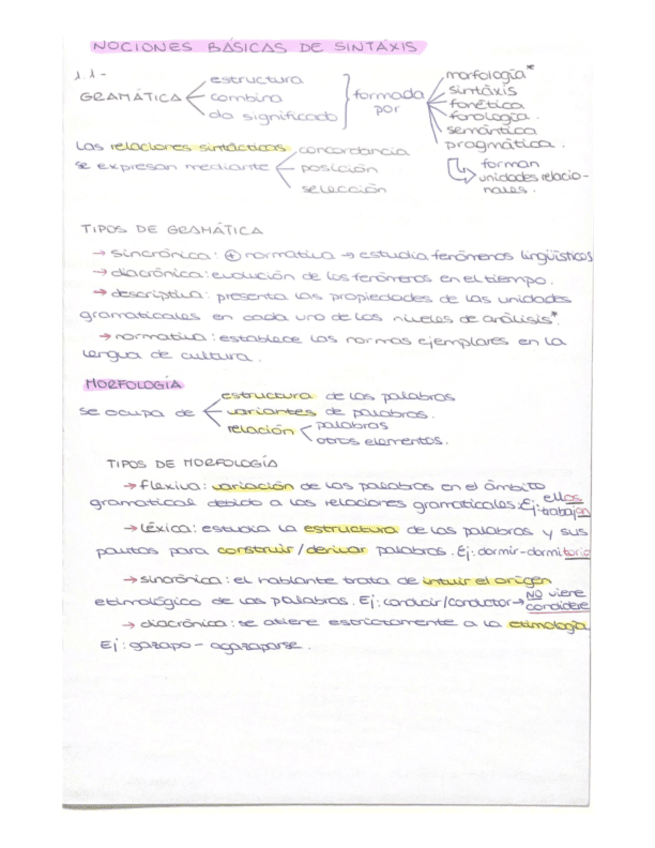 NOCIONES BÁSICAS DE SINTÁXIS
1.1-
GRAMÁTICA
estructura
combina
da significado
formada
por
morfología*
sintáxis
fonética
fonología.
semántica
pragmática.
forman
unidades relacio-
nales.
Las relaciones sintácticas
se expresan mediante
concordancia
posición
selección
TIPOS DE GRAMÁTICA
→ sincrónica: ⊕ normativa → estudia fenómenos lingüísticos
→ diacrónica: evolución de los fenómenos en el tiempo.
→ descriptiva: presenta las propiedades de las unidades
gramaticales en cada uno de los niveles de análisis*.
→ normativa: establece las normas ejemplares en la
lengua de cultura.
MORFOLOGÍA
se ocupa de
estructura de las palabras
variantes de palabras.
relación
palabras
otros elementos.
TIPOS DE MORFOLOGÍA
→ flexiva: variación de las palabras en el ámbito
gramatical debido a las relaciones gramaticales. Ej: ellos
trabajan
→ léxica: estudia la estructura de las palabras y sus
pautas para construir/derivar palabras. Ej: dormir-dormitorio
→ sincrónica: el hablante trata de intuir el origen
etimológico de las palabras. Ej: conducir/conductor → NO viene
condicere
→ diacrónica: se atiene estrictamente a la etimología.
Ej: gazapo - agazaparse.